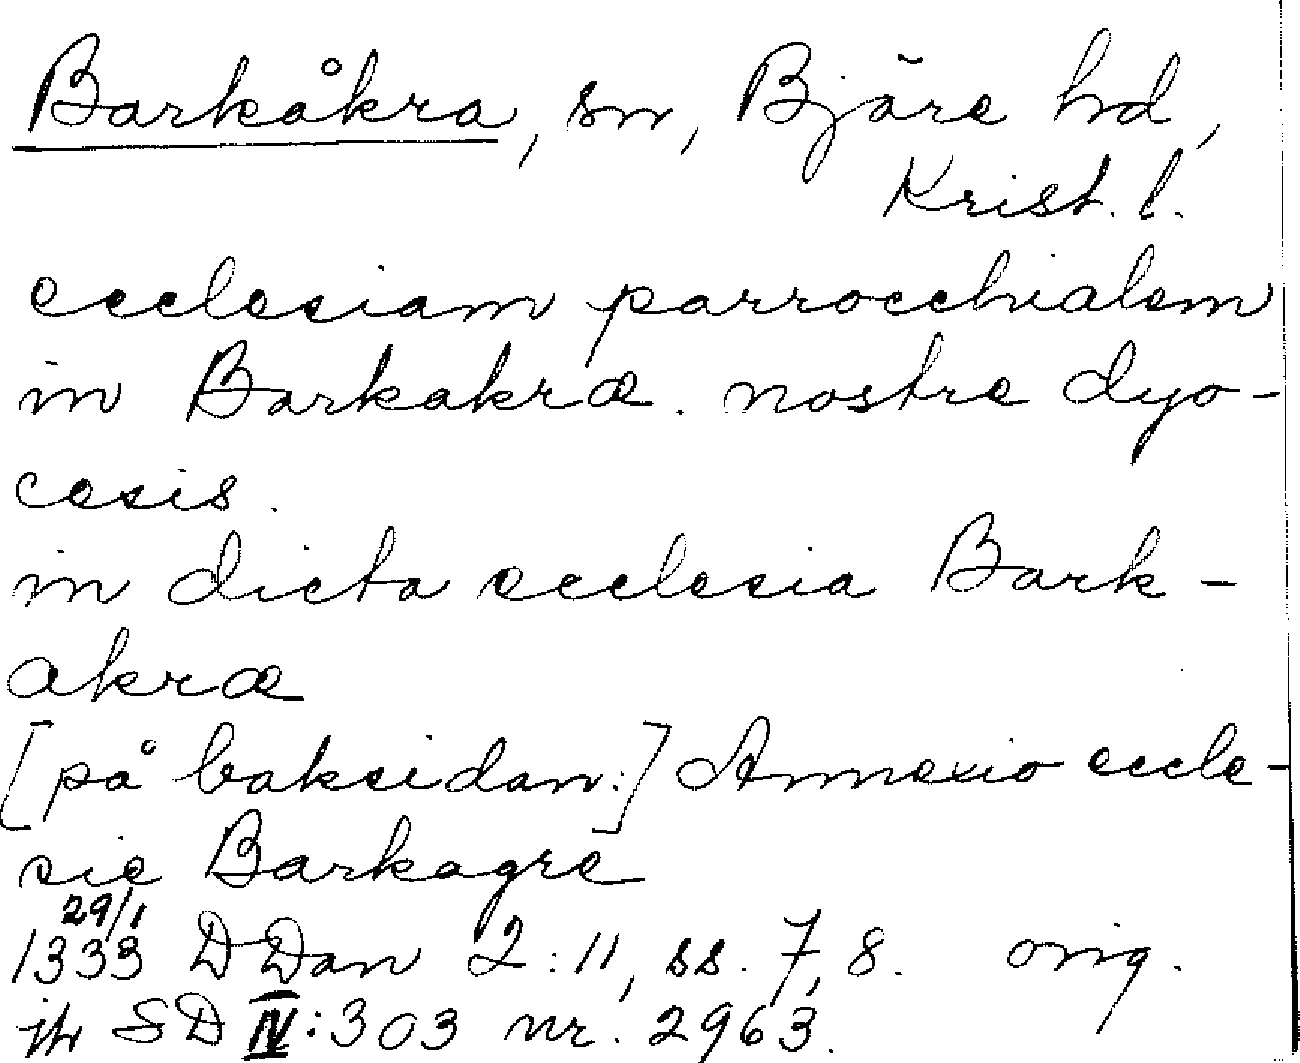 Barkåkra, sn, Bjäre hd,
Krist. l.
ecclesiam parrocchialem
in Barkakræ. nostre dyo-
cesis.
in dicta ecclesia Bark-
akræ
[på baksidan:] Annexio eccle-
sie Barkagre
29/1
1333 DDan 2:11, ss. 7, 8. orig.
jfr SD IV:303 nr. 2963.